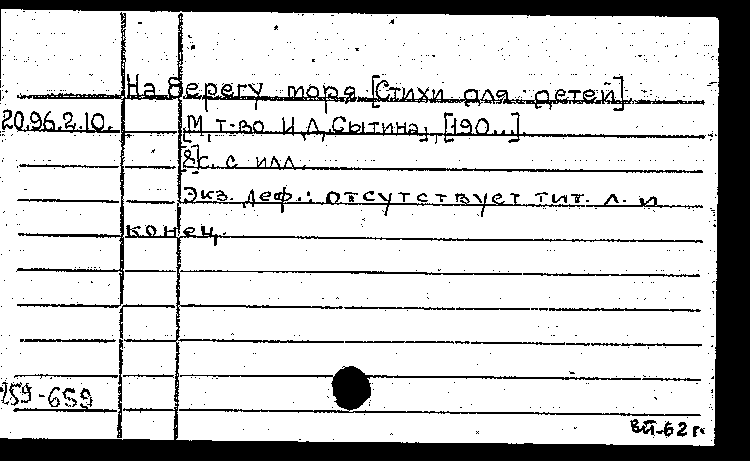 На берегу моря [Стихи для детей]
20.96.2.10. [М, т-во И.Д. Сытина, [190...].
[8]с. с илл.
Экз. деф.: отсутствует тит. л. и
конец.
259-659
ВП-62 г.